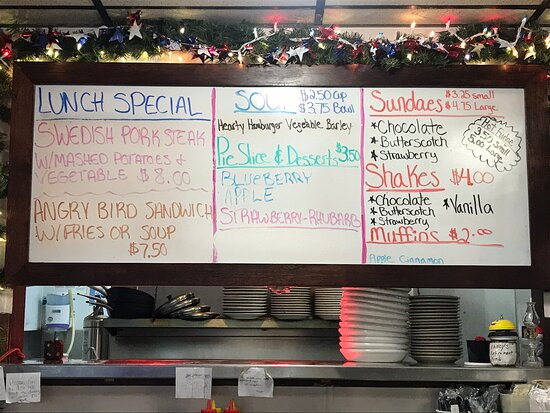 LUNCH SPECIAL
SWEDISH PORK STEAK
W/MASHED POTATOES &
VEGETABLE $8.00
ANGRY BIRD SANDWICH
W/FRIES OR SOUP
$7.50
SOUP $2.50 Cup
$3.75 Bowl
Hearty Hamburger Vegetable Barley
Pie Slice & Desserts $3.50
BLUEBERRY
APPLE
STRAWBERRY-RHUBARB
Sundaes $3.25 small
$4.75 Large
*Chocolate
*Butterscotch
*Strawberry
Hot Fudge
3.50 small
5.00 Large
Shakes $4.00
*Chocolate *Vanilla
*Butterscotch
*Strawberry
Muffins $2.00
Apple Cinnamon